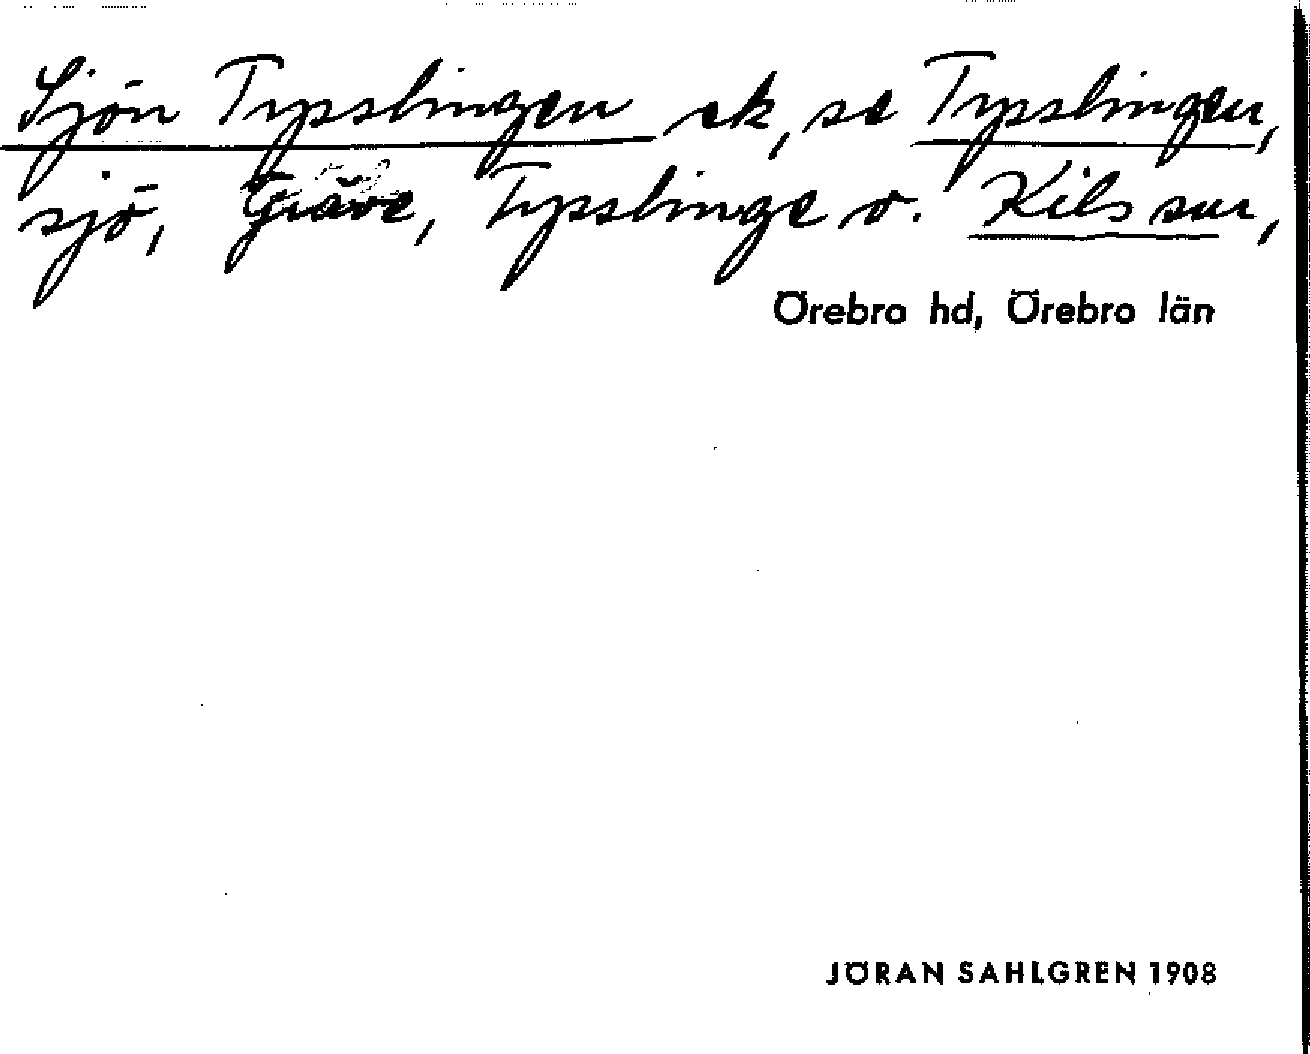 Sjön Tysslingen ek, se Tysslingen,
sjö, Gräve, Tysslinge o. Kils snr,
Örebro hd, Örebro län
JÖRAN SAHLGREN 1908